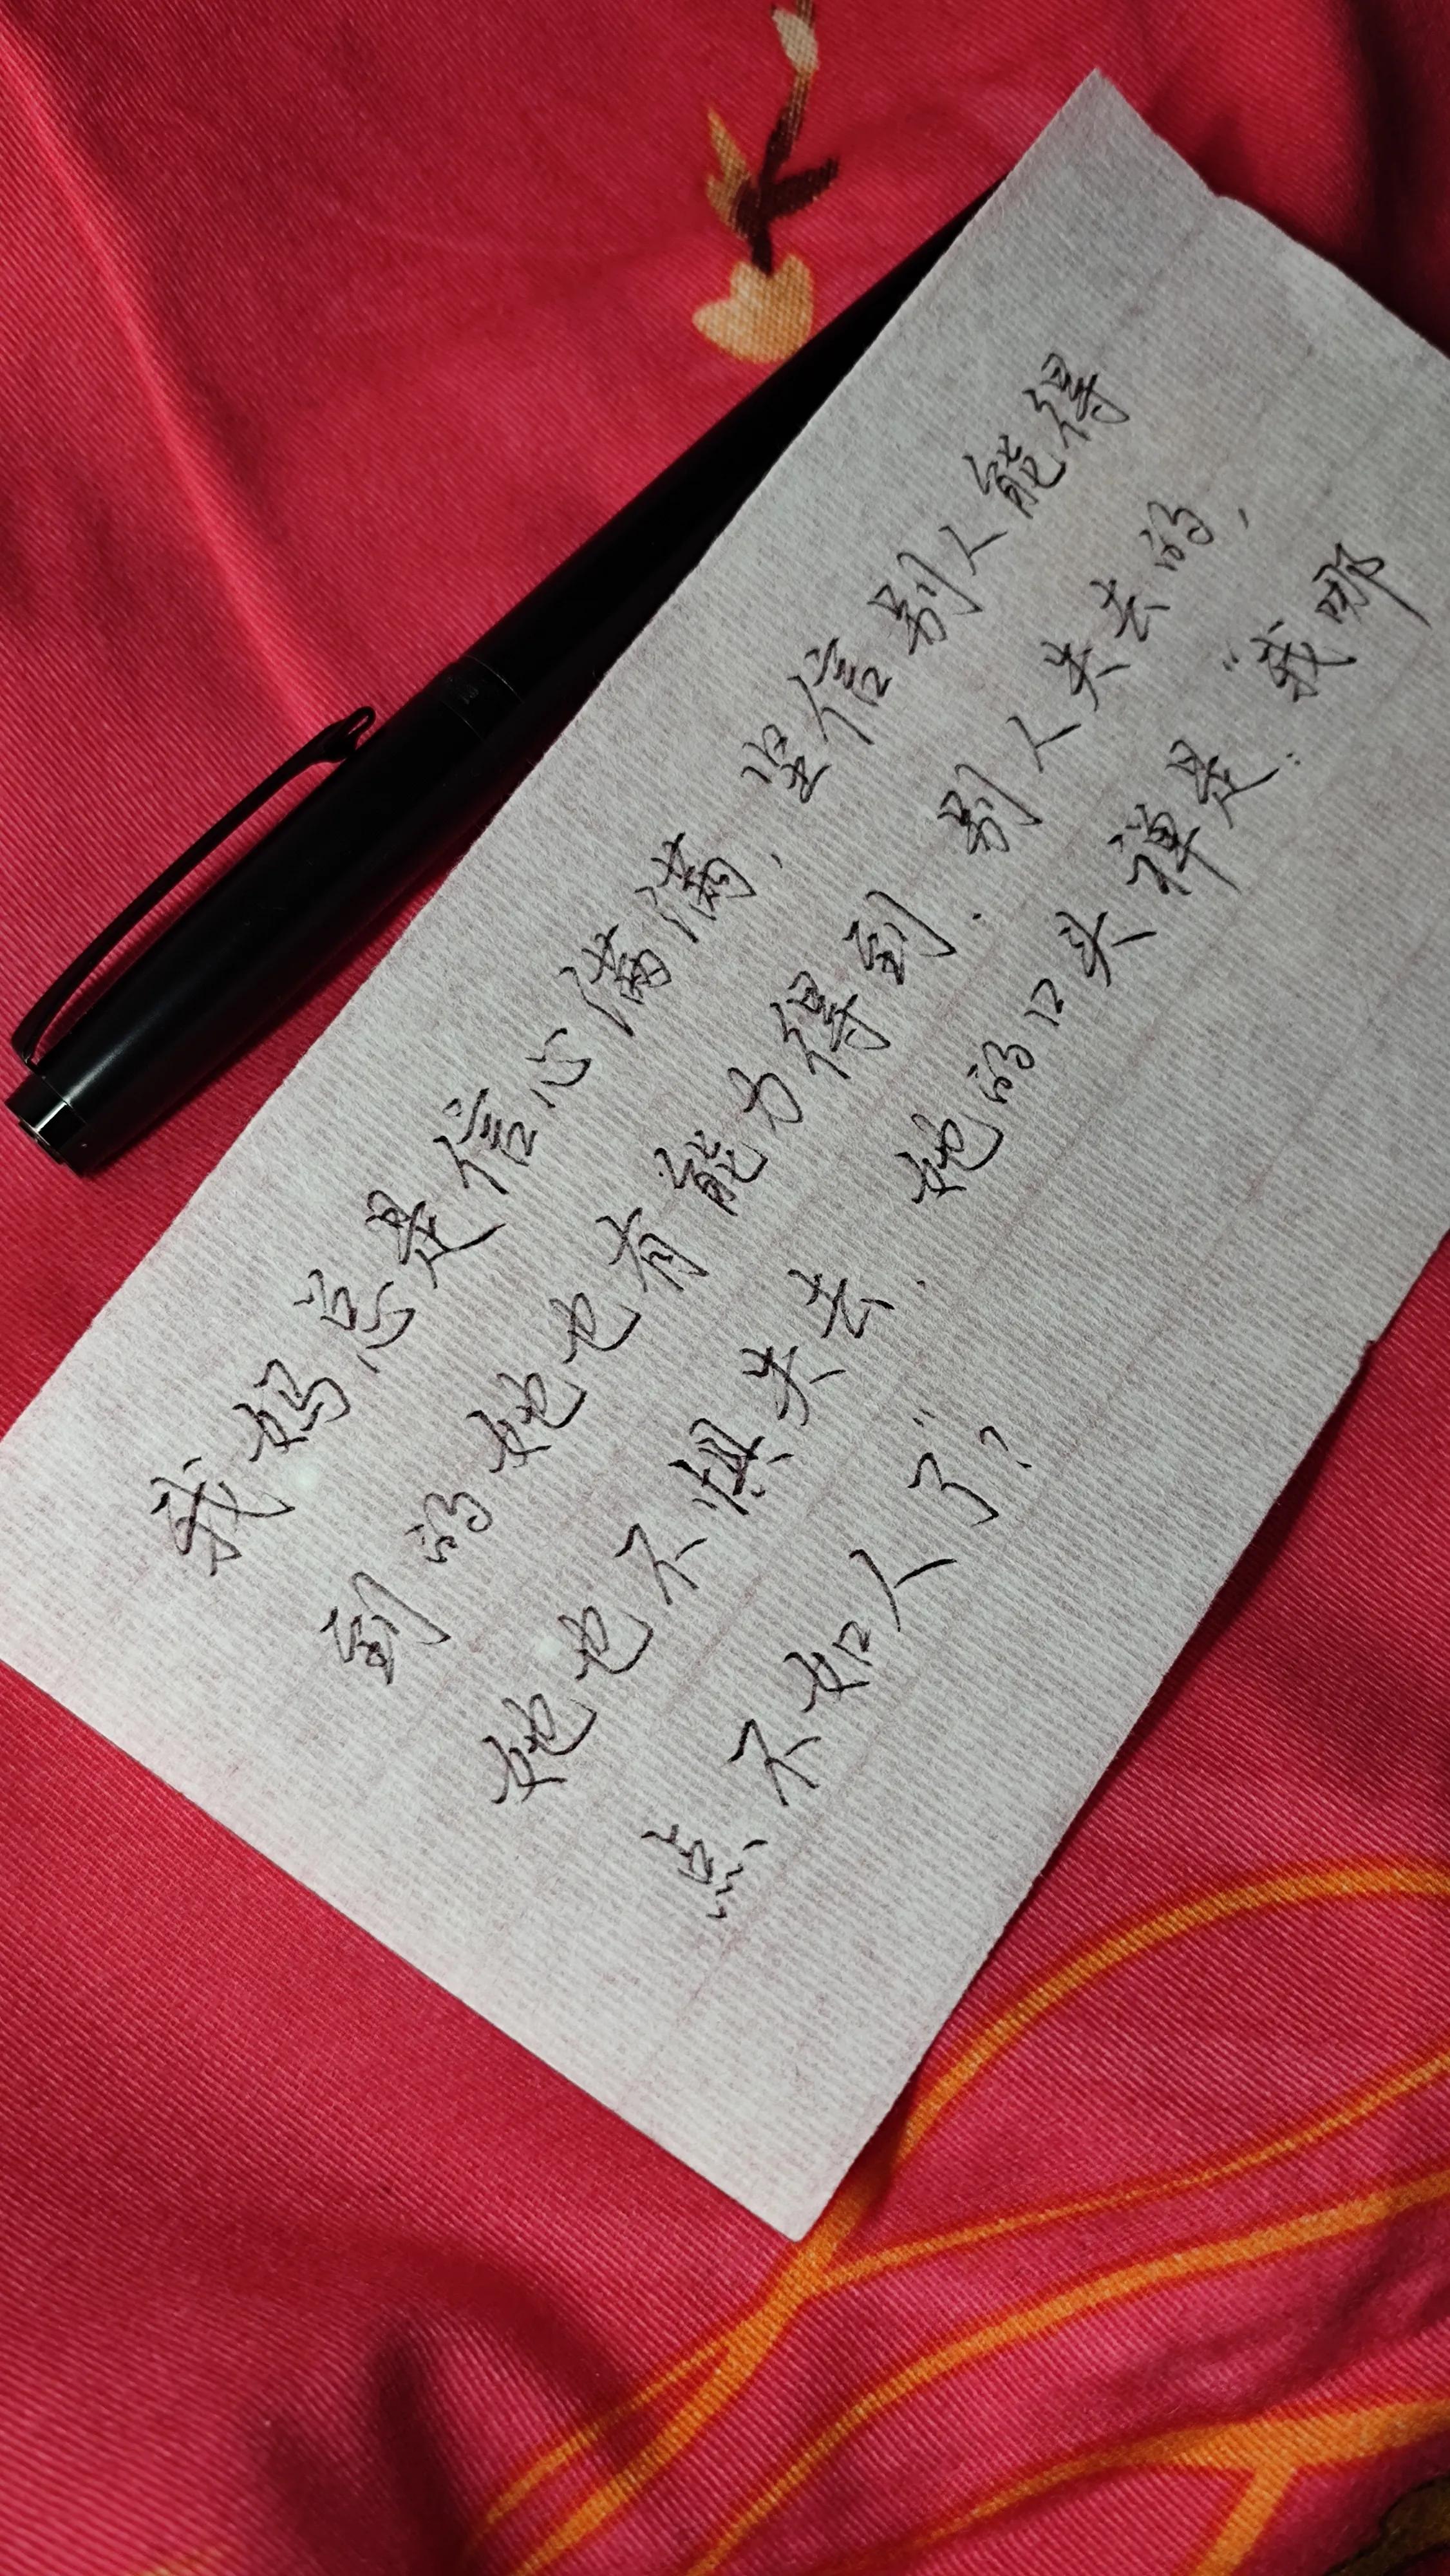 我妈总是信心满满，坚信别人能得
到的她也有能力得到.别人失去的，
她也不惧失去.她的口头禅是:“我哪
点不如人了”？